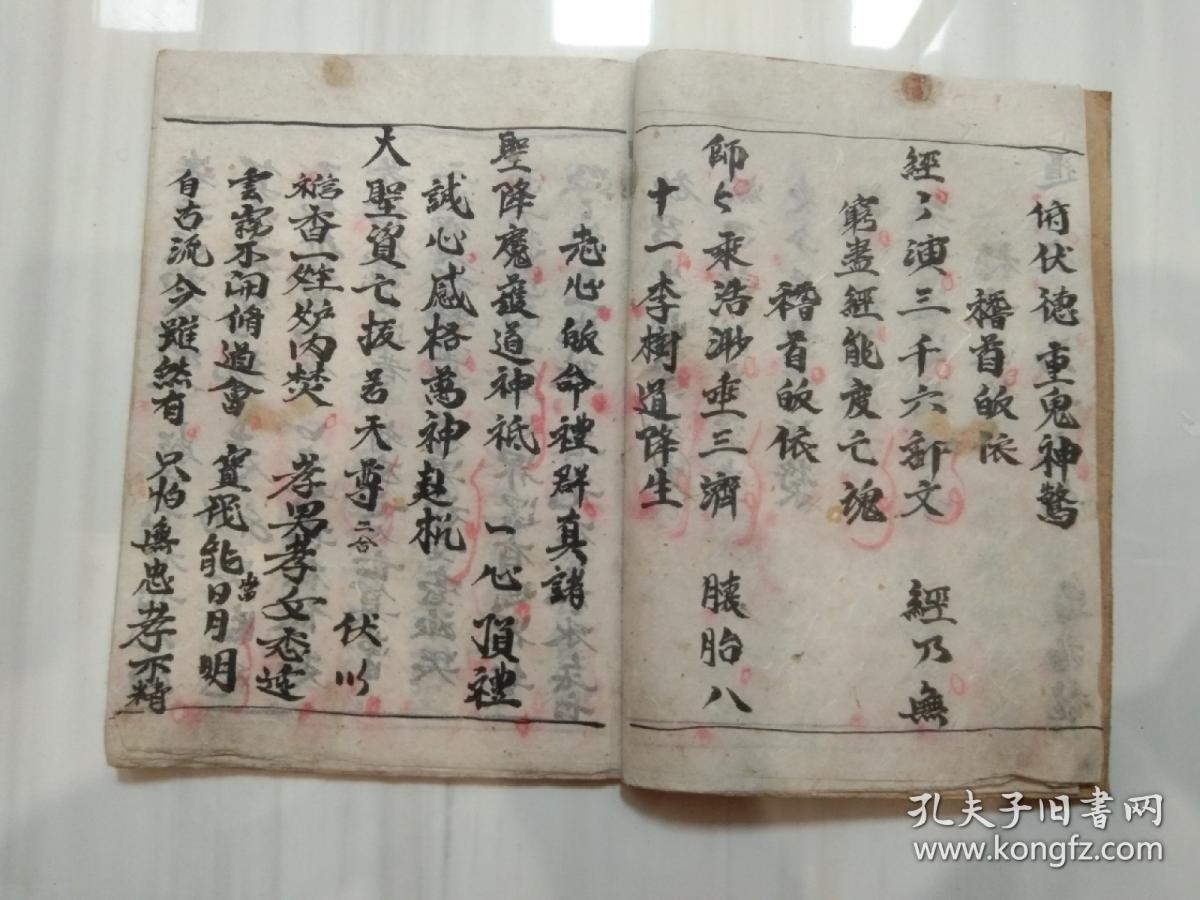 俯伏德重鬼神驚
稽首皈依
經々演三千六部文 經乃無
窮盡經能度亡魂
稽首皈依
師々乘浩渺垂三濟 腹胎八
十一李樹道降生
志心皈命禮群真諸
聖降魔護道神祇 一心頂禮
誠心感格萬神赴
大聖資亡拔若天尊 二合 伏以
檐香一炷炉内焚 孝男孝女
雲霧不開脩過會 能當日月明
自古流今雖然有 只怕無忠孝不精
孔夫子旧书网
www.kongfz.com